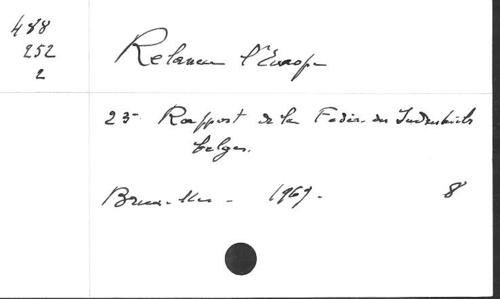 488
252
2
Relancer l'Europe
23. Rapport de la Féder. des Industriels
belges.
Bruxelles - 1969.
8